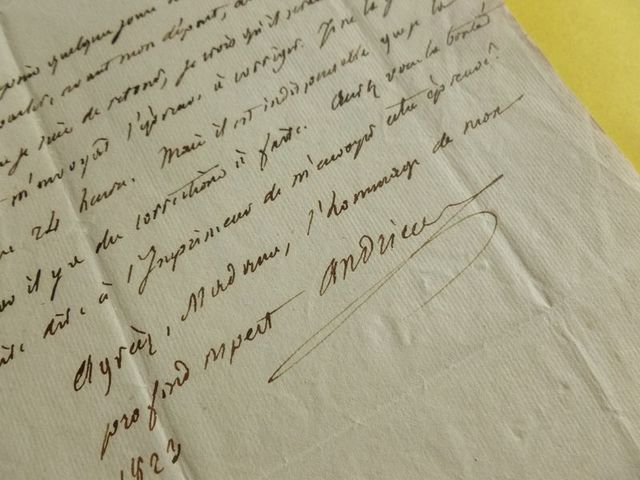 quelque jour
avant mon départ,
je suis de retour, je crois qu'il
m'envoyant l'épreuve à corriger. Je ne la
24 heures. Mais il est indispensable que je la
il y a des corrections à faire. ayez vous la bonté
dire à l'Imprimeur de m'envoyer cette épreuve?
Agréez, Madame, l'hommage de mon
profond respect Andrieux
1823